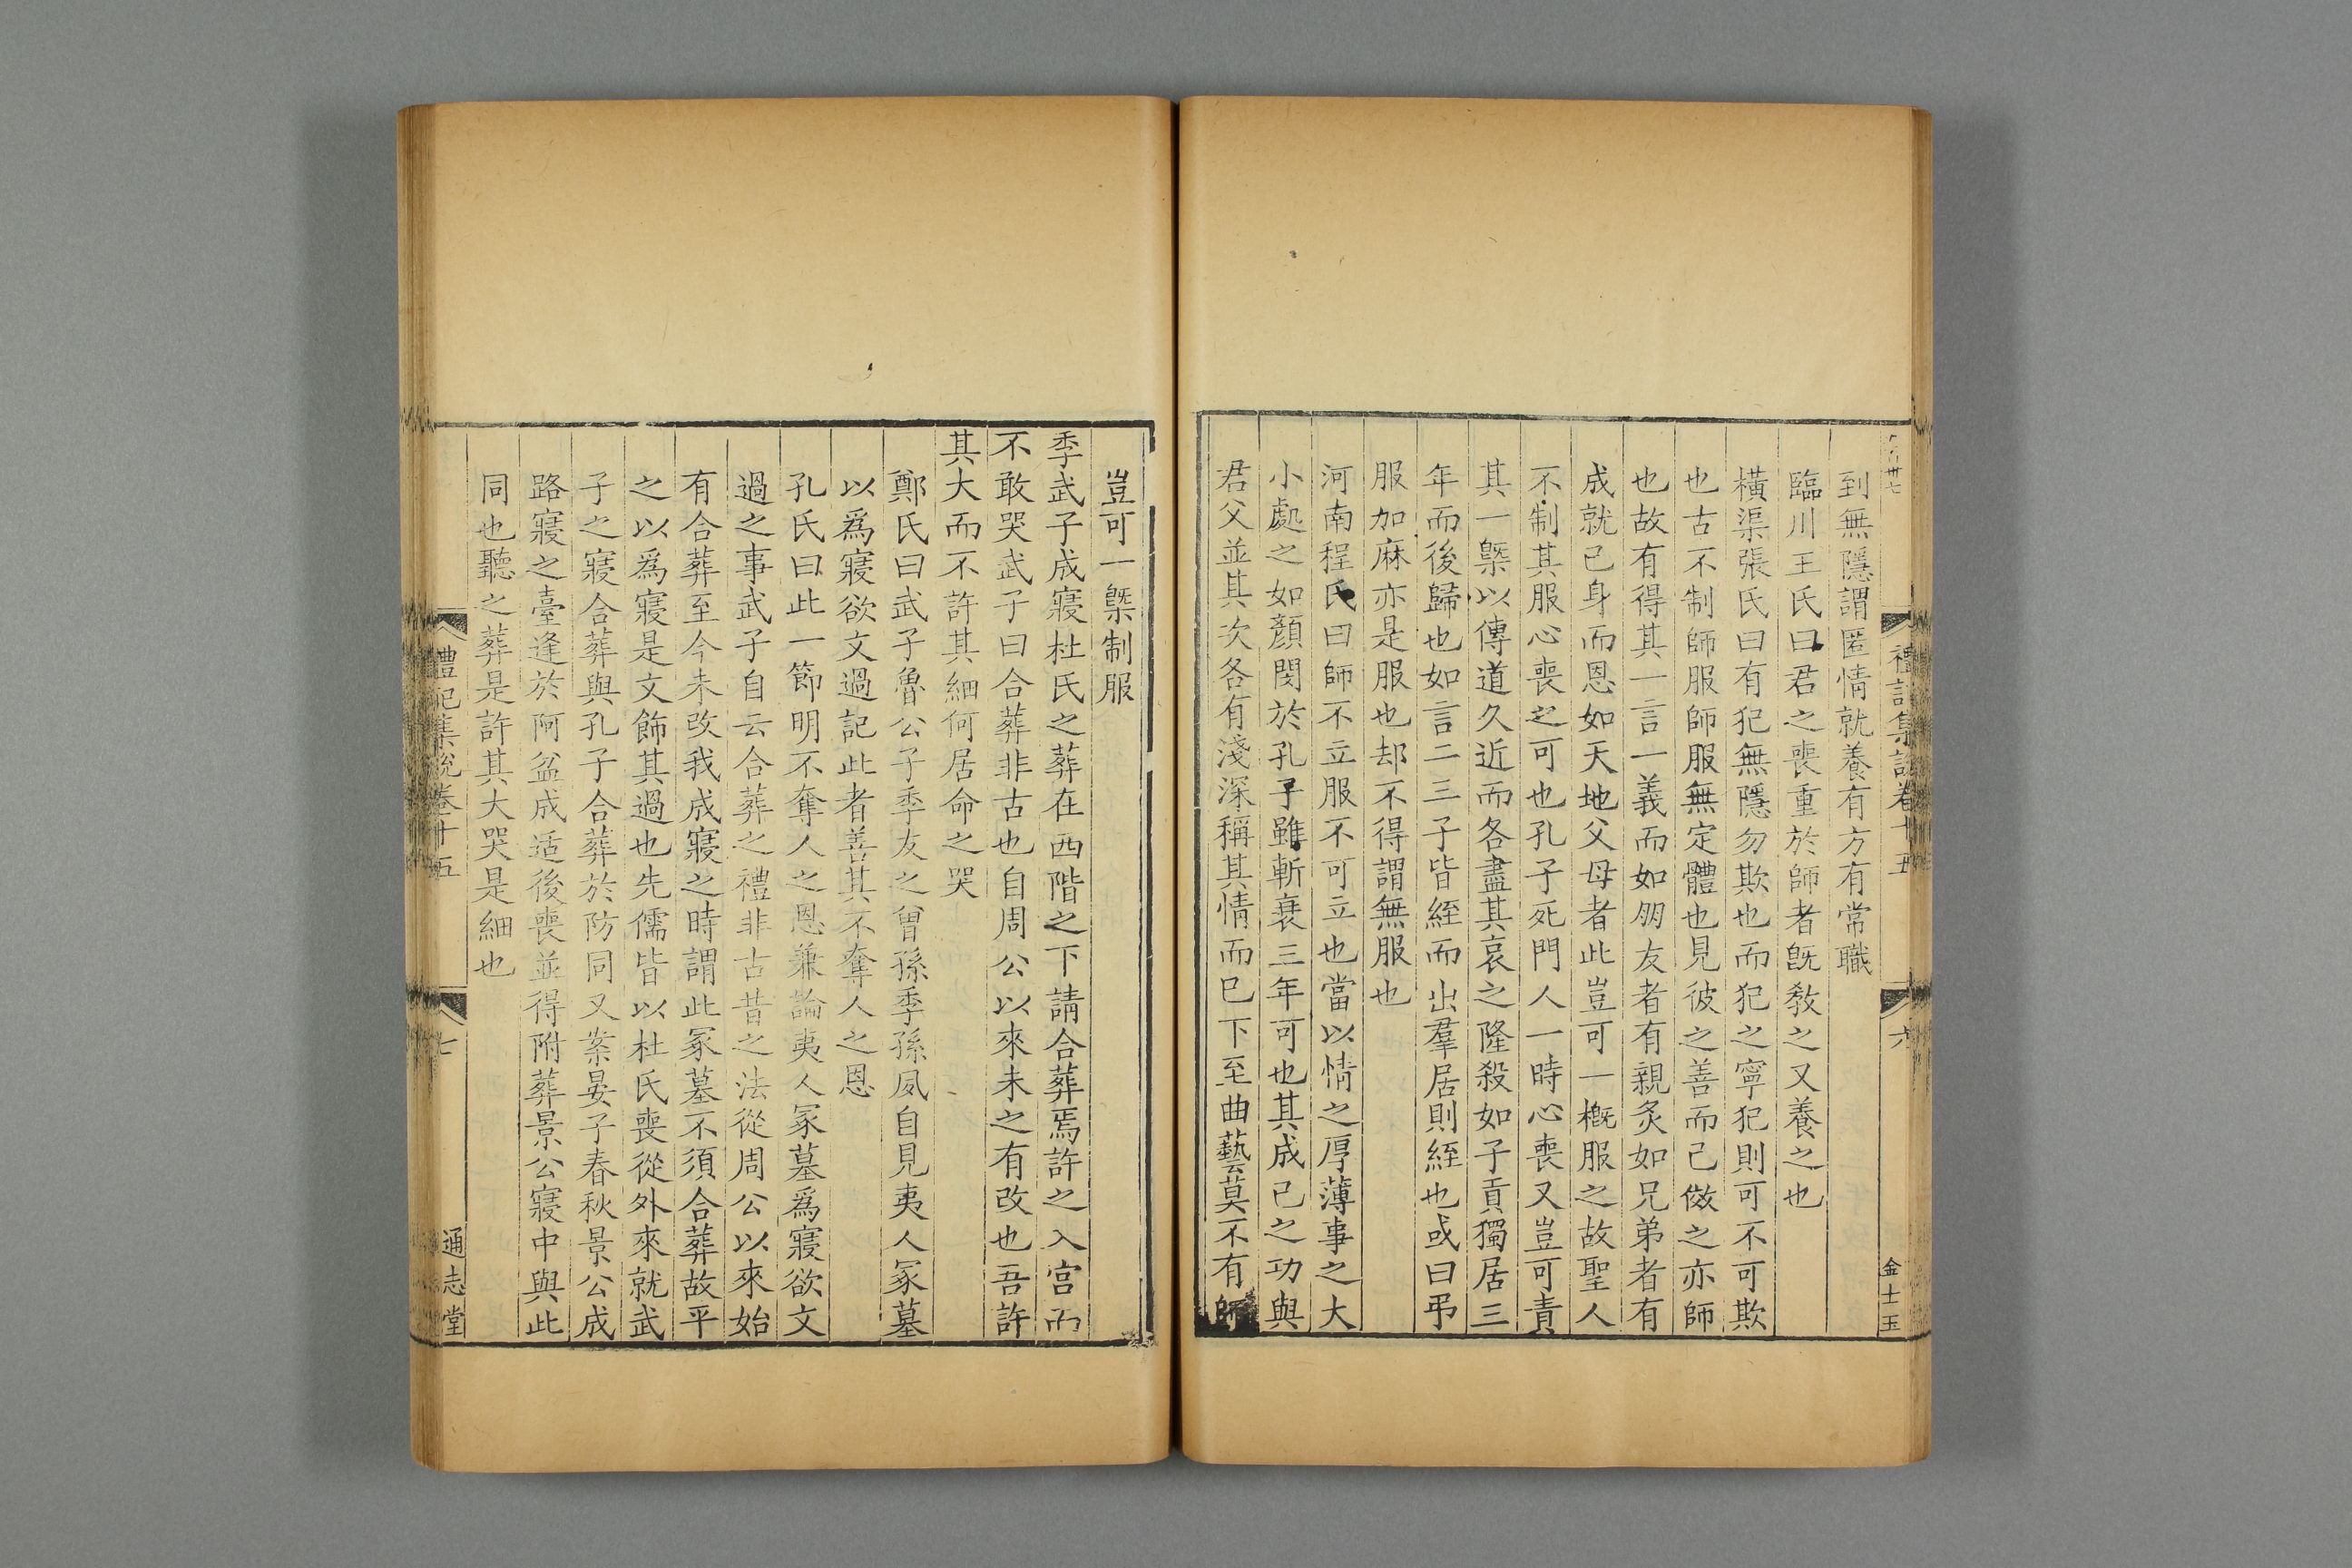 禮記集說卷十五
六
金士玉
到無隱謂匿情就養有方有常職
臨川王氏曰君之喪重於師者旣敎之又養之也
橫渠張氏曰有犯無隱勿欺也而犯之寧犯則可不可欺
也古不制師服師服無定體也見彼之善而己傚之亦師
也故有得其一言一義而如朋友者有親炙如兄弟者有
成就已身而恩如天地父母者此豈可一槪服之故聖人
不制其服心喪之可也孔子死門人一時心喪又豈可責
其一槩以傳道久近而各盡其哀之隆殺如子貢獨居三
年而後歸也如言二三子皆絰而出羣居則絰也或曰弔
服加麻亦是服也却不得謂無服也
河南程氏曰師不立服不可立也當以情之厚薄事之大
小處之如顏閔於孔子雖斬衰三年可也其成己之功與
君父並其次各有淺深稱其情而已下至曲藝莫不有師
豈可一槩制服
季武子成寢杜氏之葬在西階之下請合葬焉許之入宫而
不敢哭武子曰合葬非古也自周公以來未之有改也吾許
其大而不許其細何居命之哭
鄭氏曰武子魯公子季友之曾孫季孫夙自見夷人冢墓
以爲寢欲文過記此者善其不奪人之恩
孔氏曰此一節明不奪人之恩兼論夷人冢墓爲寢欲文
過之事武子自云合葬之禮非古昔之法從周公以來始
有合葬至今未改我成寢之時謂此冢墓不須合葬故平
之以爲寢是文飾其過也先儒皆以杜氏喪從外來就武
子之寢合葬與孔子合葬於防同又案晏子春秋景公成
路寢之臺逢於阿盆成适後喪並得附葬景公寢中與此
同也聽之葬是許其大哭是細也
禮記集說卷十五
七
通志堂